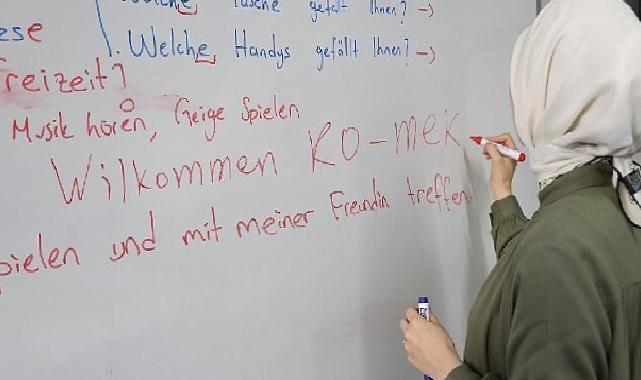 Welche Tasche gefält Ihnen? →
1. Welche Handys gefällt Ihnen? →
ese
reizeit]
Musik hören, Geige Spielen
Wilkommen KO-mek
pielen und mit meiner Freundin treffen.